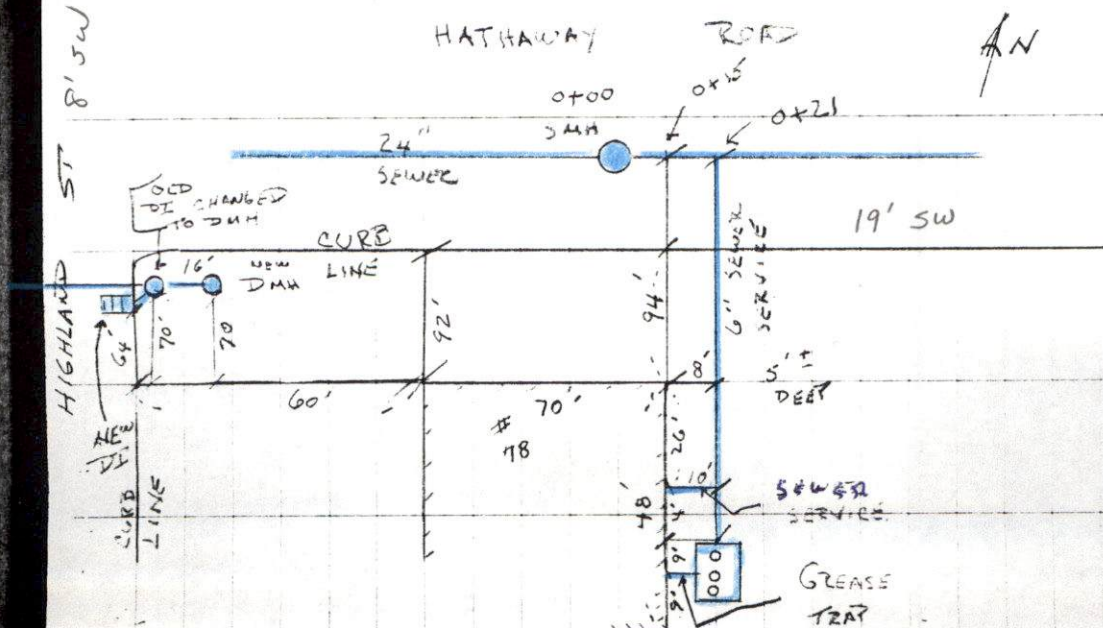 HATHAWAY ROAD
N
8' SW
HIGHLAND ST
0+00
SMH
0+21
24"
SEWER
OLD
DI CHANGED
TO DMH
CURB
LINE
16'
NEW
DMH
19' SW
6" SEWER
SERVICE
64'
70'
70
92'
94'
8'
5' ±
DEEP
60'
70'
#
78
26'
10'
SEWER
SERVICE
CURB
LINE
48'
4'
9'
9'
GREASE
TRAP